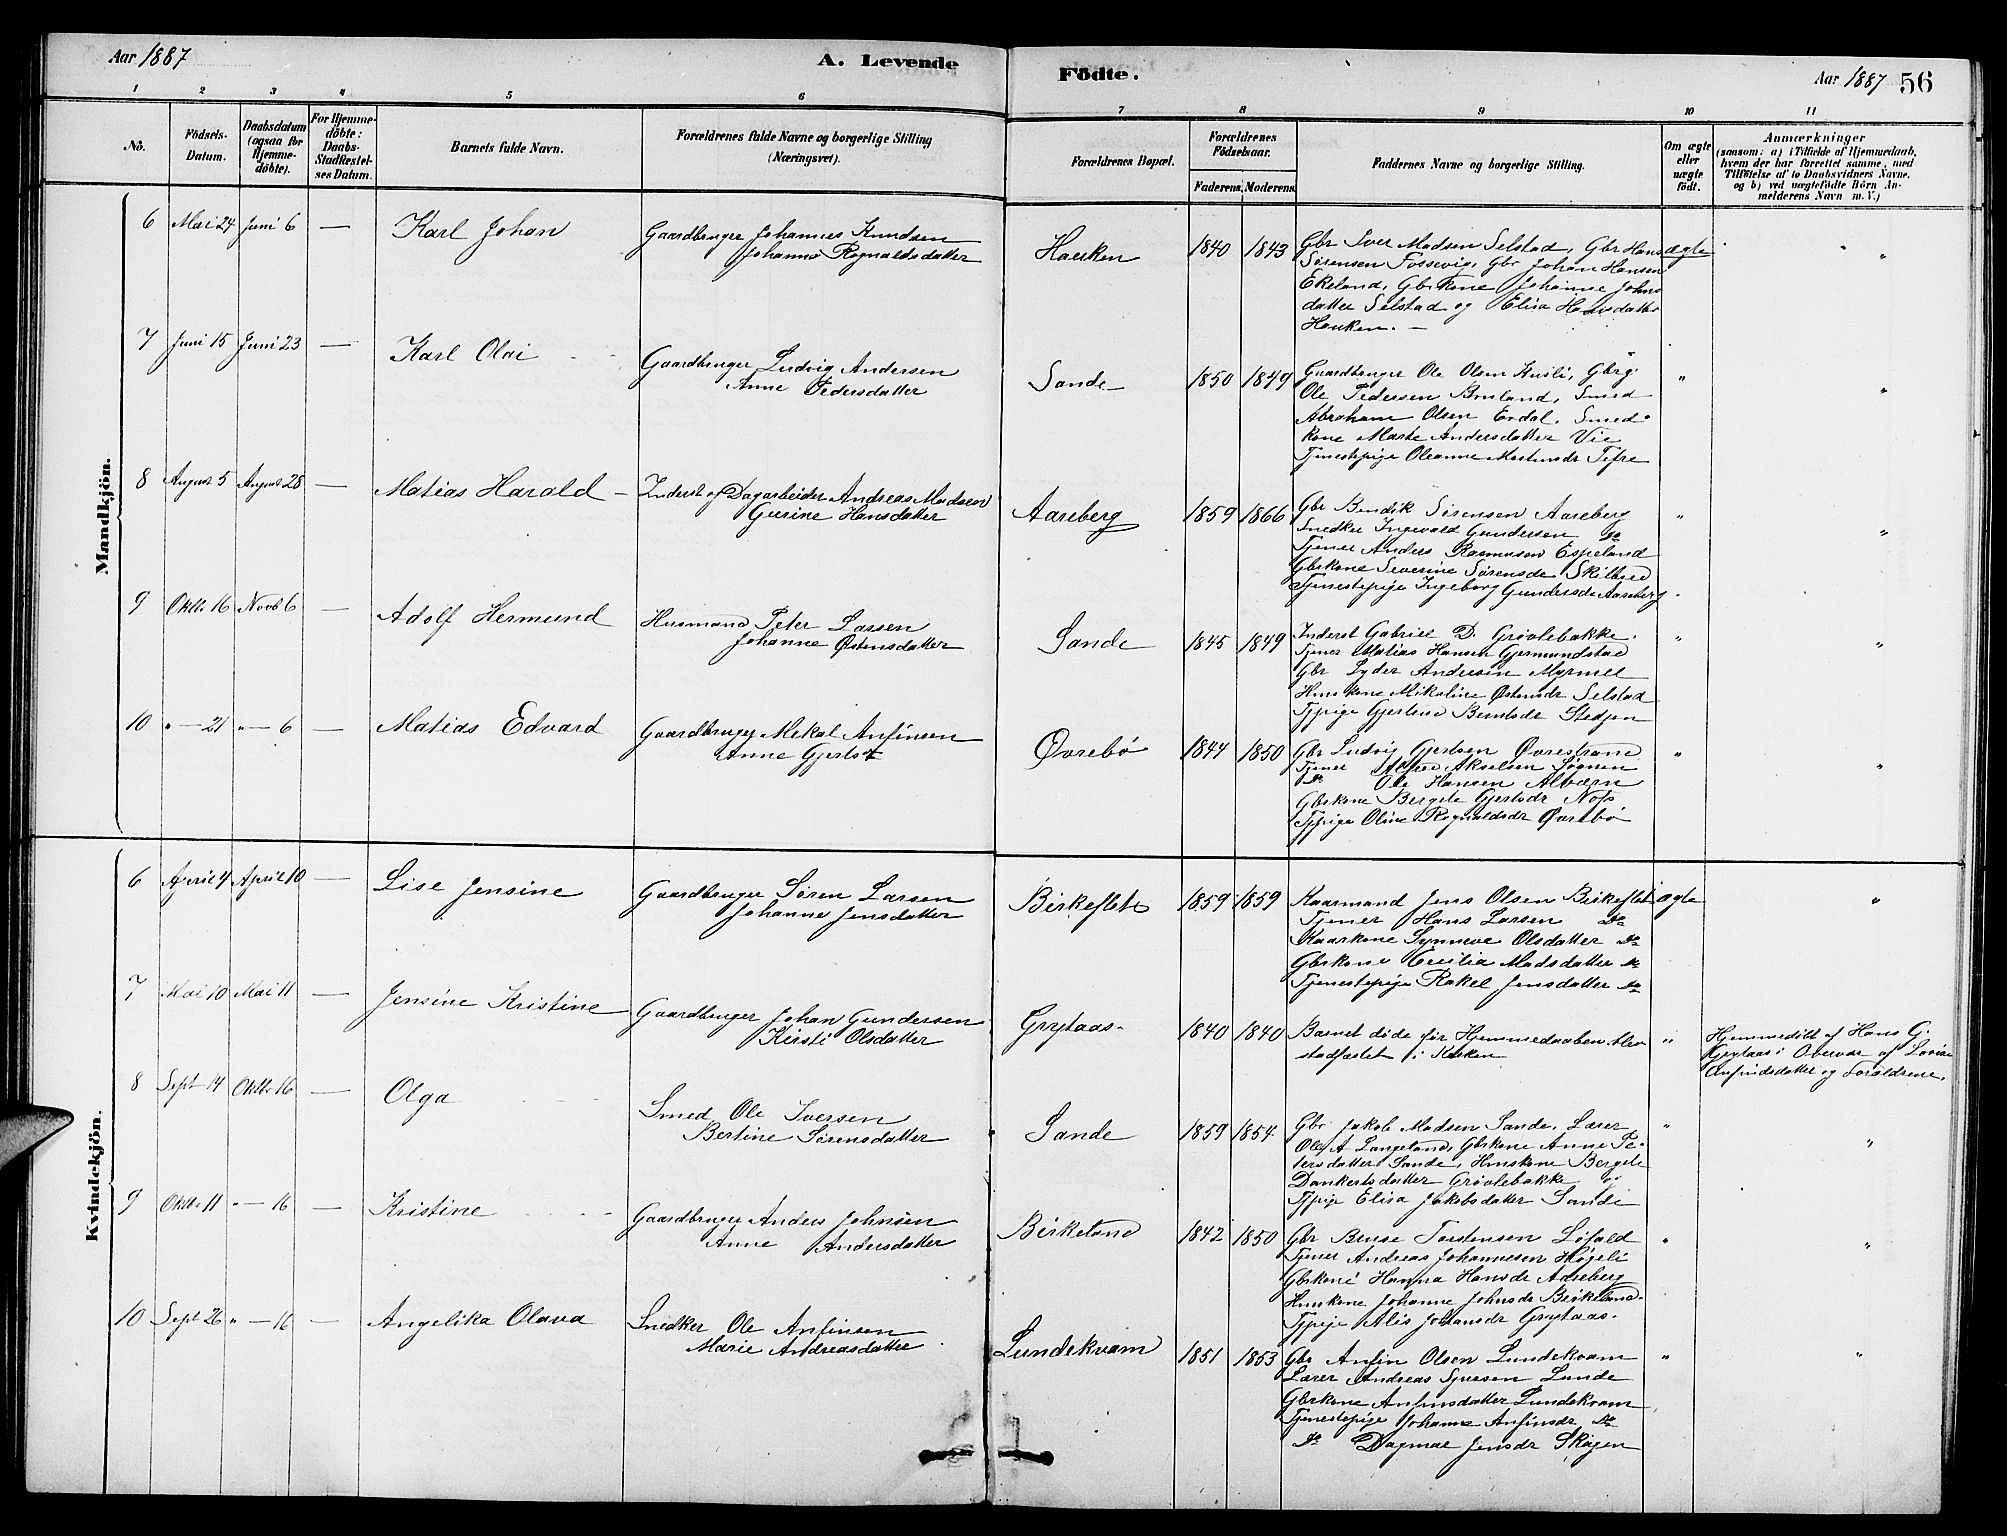 Aar 1887
A. Levende
Födte.
Aar 1887
56
1 2 3 4 5 6 7 8 9 10 11
Nö.
Födsels-Datum.
Daabsdatum (ogsaa for Hjemme-döbte).
For Hjemme-döbte: Daabs-Stadfæstelses Datum.
Barnets fulde Navn.
Forældrenes fulde Navne og borgerlige Stilling (Næringsvei).
Forældrenes Bopæl.
Forældrenes Födselsaar.
Faderens. Moderens.
Faddernes Navne og borgerlige Stilling.
Om ægte eller uægte födt.
Anmærkninger
(saasom: a) i Tilfælde af Hjemmedaab, hvem der har forrettet samme, med Tilföielse af to Daabsvidners Navne. og b) ved uægtefödte Börn Anmelderens Navn m. V.)
Mandkjön.
6 Mai 24 Juni 6 — Karl Johan
Gaardbruger Johannes Knudsen
Johanne Rognaldsdatter
Hauken 1840 1843
Gbr Iver Madsen Selstad, Gbr Hans
Sørensen Fossevig, Gbr Johan Hansen
Ekeland, Gbrkone Johanne Johns
datter Selstad og Elisa Hansdatter
Hauken. —
ægte "
7 Juni 15 Juni 23 — Karl Olai
Gaardbruger Ludvig Andersen
Anne Pedersdatter
Sande 1850 1849
Gaardbruger Ole Olsen Husli, Gbrg
Ole Pedersen Bruland, Smed
Abraham Olsen Erdal, Smed
kone Marte Andersdatter Vie
Tjenestepige Oleanne Martinsdr Tefre
" "
8 August 5 August 28 — Matias Harald —
Inderst og Dagarbeider Andreas Madsen
Gurine Hansdatter
Aareberg 1859 1866
Gbr Bendik Sørensen Aareberg
Snedker Ingevald Gundersen Do
Tjener Anders Rasmusen Espeland
Gbrkone Severine Sørensdr Skilbred
Tjenestepige Ingeborg Gundersdr Aareberg.
" "
9 Oktbr 16 Novb 6 — Adolf Hermund
Husmand Peter Larsen
Johanne Østensdatter
Sande 1845 1849
Inderst Gabriel D. Grøvlebakke.
Tjener Matias Hansen Gjermundstad
Gbr Lyder Andersen Myrmel
Hmskone Mikaline Østensdr Selstad
Tjpige Gjertrud Berntsdr Stedjen
" "
10 " — 21 " — 6 — Matias Edvard
Gaardbruger Mikal Anfinsen
Anne Gjertsd
Øvrebø 1844 1850
Gbr Ludvig Gjertsen Øvrestrand
Tjener Akselsen Sognen
Do Ole Hansen Alværn
Gbrkone Bergete Gjertsdr
Tjpige Oline Rognaldsdr Øvrebø
" "
Kvindekjön.
6 April 4 April 10 — Lise Jensine
Gaardbruger Søren Larsen
Johanne Jensdatter
Birkeflet 1859 1859
Kaarmand Jens Olsen Birkeflet
Tjener Hans Larsen Do
Kaarkone Synneve Olsdatter Do
Gbrkone Cecilia Madsdatter Do
Tjenestepige Rakel Jensdatter Do
ægte "
7 Mai 10 Mai 11 — Jensine Kristine
Gaardbruger Johan Gundersen
Kirsti Olsdatter
Grytaas. 1840 1840
Barnet døde før Hjemmedaaben blev
stadfæstet i Kirken
"
Hjemmedøbt af Hans G.
Grytaas i Overvær af Lovise
Anfindsdatter og Forældrene.
8 Sept 14 Oktbr 16 — Olga
Smed Ole Iversen
Bertine Sørensdatter
Sande 1859 1854
Gbr Jakob Madsen Sande, Lærer
Ole A Langeland, Gbrkone Anne Pe-
tersdatter Sande, Hmskone Bergete
Dankertsdatter Grøvlebakke og
Tjpige Elisa Jakobsdatter Sande
" "
9 Oktbr 11 " — 16 — Kristine
Gaardbruger Anders Johnsen
Anne Andersdatter
Birkeland 1842 1850
Gbr Bruse Torstensen Løfald
Tjener Andreas Johannesen Høgeli
Gbrkone Hanna Hansdr Aareberg
Hmskone Johanne Johnsdr Birkeland.
Tjpige Alis Johansdr Grytaas.
" "
10 Sept 26 " — 16 — Angelika Olava
Snedker Ole Anfinsen
Marie Andreasdatter
Lundekvam 1851 1853
Gbr Anfin Olsen Lundekvam
Lærer Andreas Sjursen Lunde
Gbrkone Anfinsdatter Lundekvam
Tjenestepige Johanne Anfinsdr Do
Do Dagmar Jensdr Skogen
" "